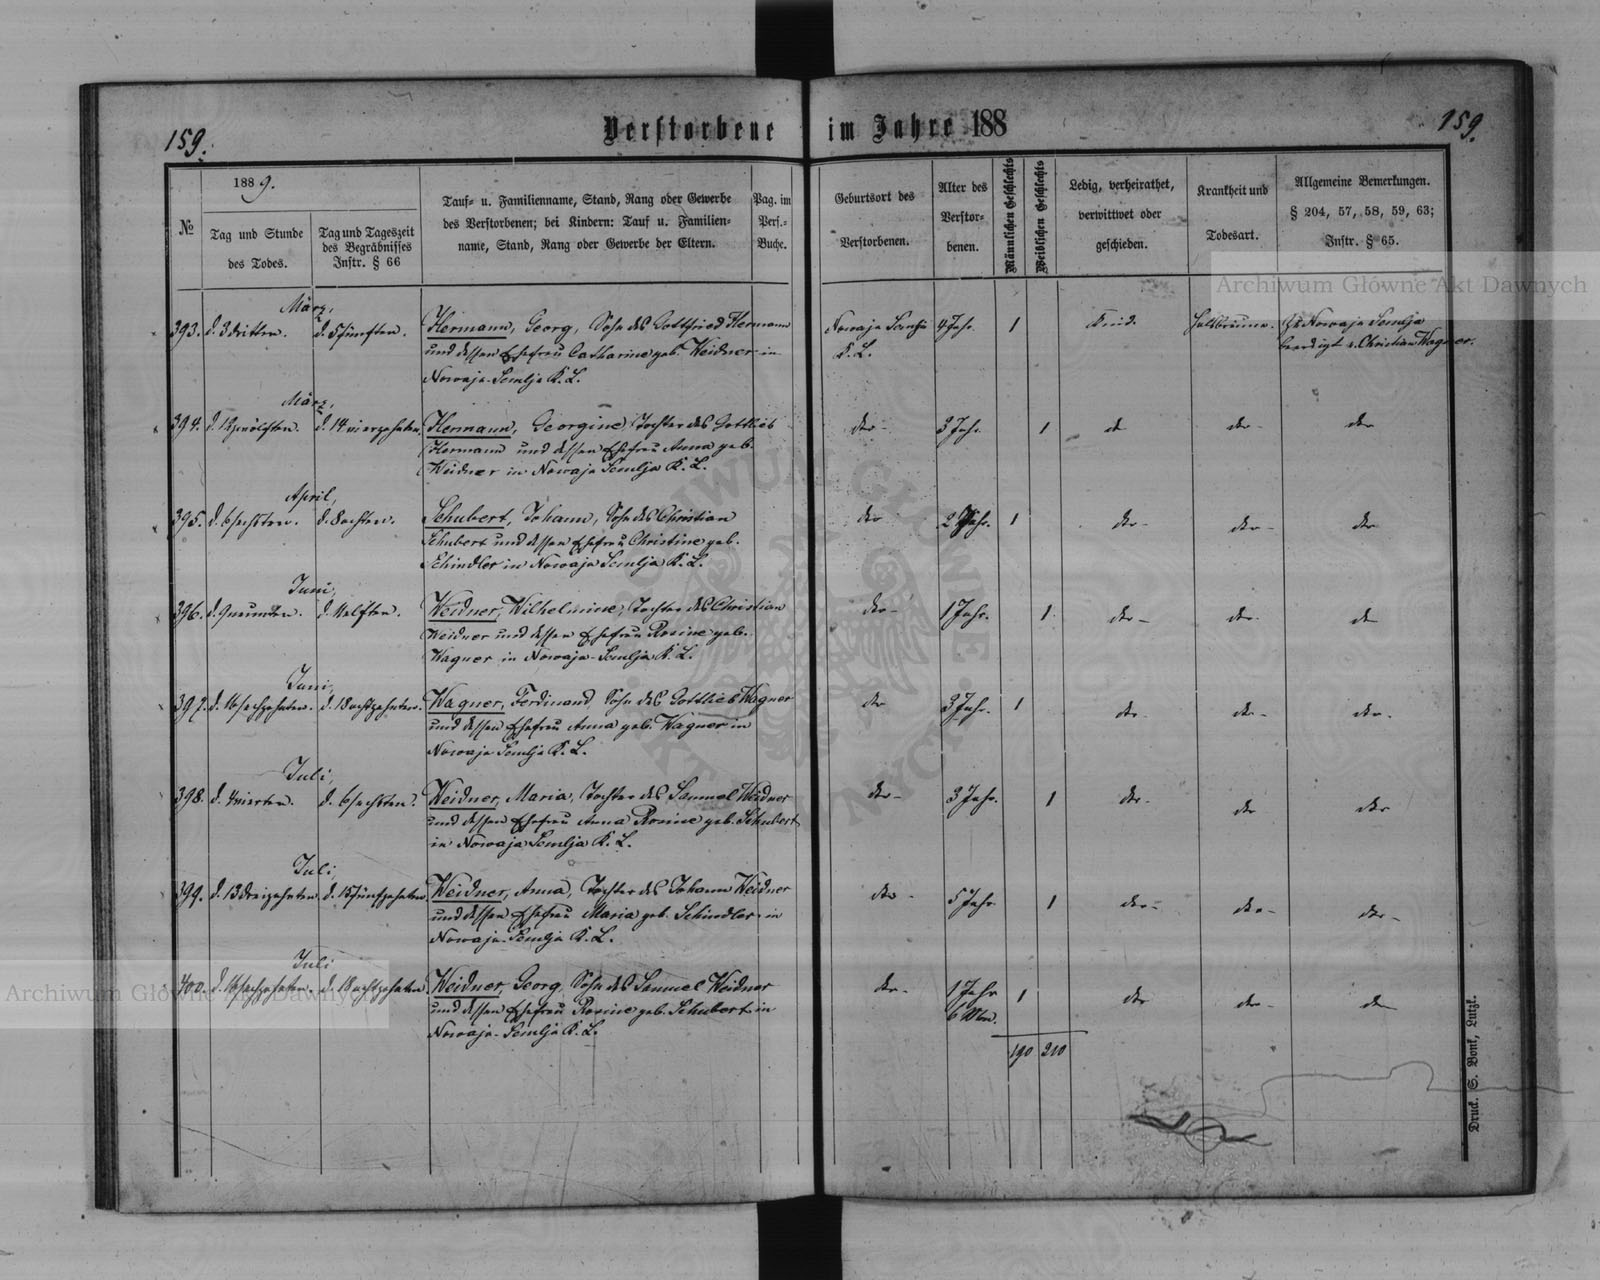 159.
Verstorbene im Jahre 188
159.
№
188 9.
Tag und Stunde
des Todes.
Tag und Tageszeit
des Begräbnisses
Instr. § 66
Tauf- u. Familienname, Stand, Rang oder Gewerbe
des Verstorbenen; bei Kindern: Tauf u. Familien-
name, Stand, Rang oder Gewerbe der Eltern.
Pag. im
Pers.-
Buche.
Geburtsort des
Verstorbenen.
Alter des
Verstor-
benen.
Männlichen Geschlechts
Weiblichen Geschlechts
Ledig, verheirathet,
verwittwet oder
geschieden.
Krankheit und
Todesart.
Allgemeine Bemerkungen.
§ 204, 57, 58, 59, 63;
Instr. § 65.
März,
393. d. 3 dritten. d. 5 fünften. Hermann, Georg, Sohn des Gottfried Hermann
und dessen Ehefrau Catharine geb. Weidner in
Nowaja-Semlja K. L.
Nowaja Semlja
K. L.
4 Jahr. 1 Kind. Halsbräune. Zu Nowaja Semlja
beerdigt v. Christian Wagner.
März,
394. d. 12 zwölften. d. 14 vierzehnten. Hermann, Georgine, Tochter des Gottlieb
Hermann und dessen Ehefrau Anna geb.
Weidner in Nowaja Semlja K. L.
dto 3 Jahr. 1 dto dto dto
April,
395. d. 6 sechsten. d. 8 achten. Schubert, Johann, Sohn des Christian
Schubert und dessen Ehefrau Christine geb.
Schindler in Nowaja Semlja K. L.
dto 2 Jahr. 1 dto dto dto
Juni,
396. d. 9 neunten. d. 11 elften. Weidner, Wilhelmine, Tochter des Christian
Weidner und dessen Ehefrau Rosine geb.
Wagner in Nowaja-Semlja K. L.
dto 1 Jahr. 1 dto dto dto
Juni,
397. d. 16 sechzehnten. d. 18 achtzehnten. Wagner, Ferdinand, Sohn des Gottlieb Wagner
und dessen Ehefrau Anna geb. Wagner in
Nowaja Semlja K. L.
dto 3 Jahr. 1 dto dto dto
Juli,
398. d. 4 vierten. d. 6 sechsten. Weidner, Maria, Tochter des Samuel Weidner
und dessen Ehefrau Anna Rosine geb. Schubert
in Nowaja Semlja K. L.
dto 3 Jahr. 1 dto dto dto
Juli,
399. d. 13 dreizehnten. d. 15 fünfzehnten. Weidner, Anna, Tochter des Johann Weidner
und dessen Ehefrau Maria geb. Schindler in
Nowaja-Semlja K. L.
dto 5 Jahr 1 dto dto dto
Juli
400. d. 16 sechzehnten. d. 18 achtzehnten. Weidner, Georg, Sohn des Samuel Weidner
und dessen Ehefrau Rosine geb. Schubert in
Nowaja-Semlja K. L.
dto 1 Jahr
6 Mon. 1 dto dto dto
190 210
Druck. S. Bonk, Lutzk.
Archiwum Główne Akt Dawnych
Archiwum Główne Akt Dawnych
ARCHIWUM GŁÓWNE AKT DAWNYCH